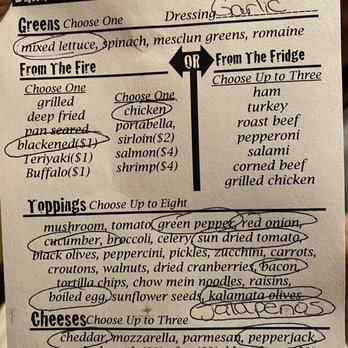 Dressing Garlic
Greens Choose One
mixed lettuce, spinach, mesclun greens, romaine
From The Fire
OR
From The Fridge
Choose One
grilled
deep fried
pan seared
blackened($1)
Teriyaki($1)
Buffalo($1)
Choose One
chicken
portabella,
sirloin($2)
salmon($4)
shrimp($4)
Choose Up to Three
ham
turkey
roast beef
pepperoni
salami
corned beef
grilled chicken
Toppings Choose Up to Eight
mushroom, tomato, green pepper, red onion,
cucumber, broccoli, celery, sun dried tomato,
black olives, peppercini, pickles, zucchini, carrots,
croutons, walnuts, dried cranberries, bacon,
tortilla chips, chow mein noodles, raisins,
boiled egg, sunflower seeds, kalamata olives
Jalapenos
Cheeses Choose Up to Three
cheddar, mozzarella, parmesan, pepperjack,